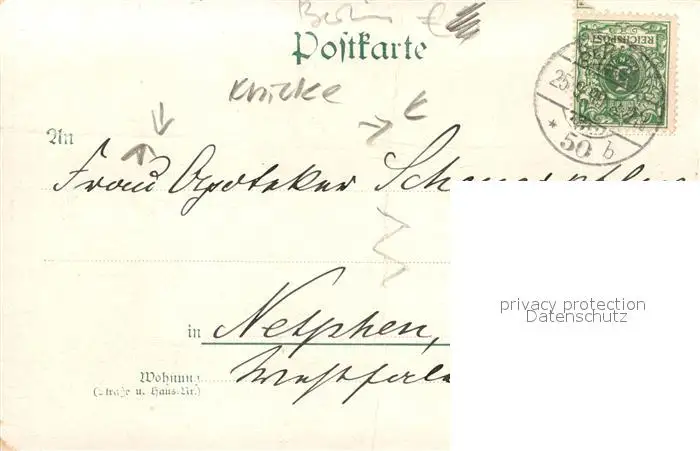 Berlin
Postkarte
REICHSPOST
Knicke
25.
* 50 b
An
Frau Apoteker
in Netphen,
Wohnung
(Straße u. Haus-Nr.)
Westfalen
privacy protection
Datenschutz